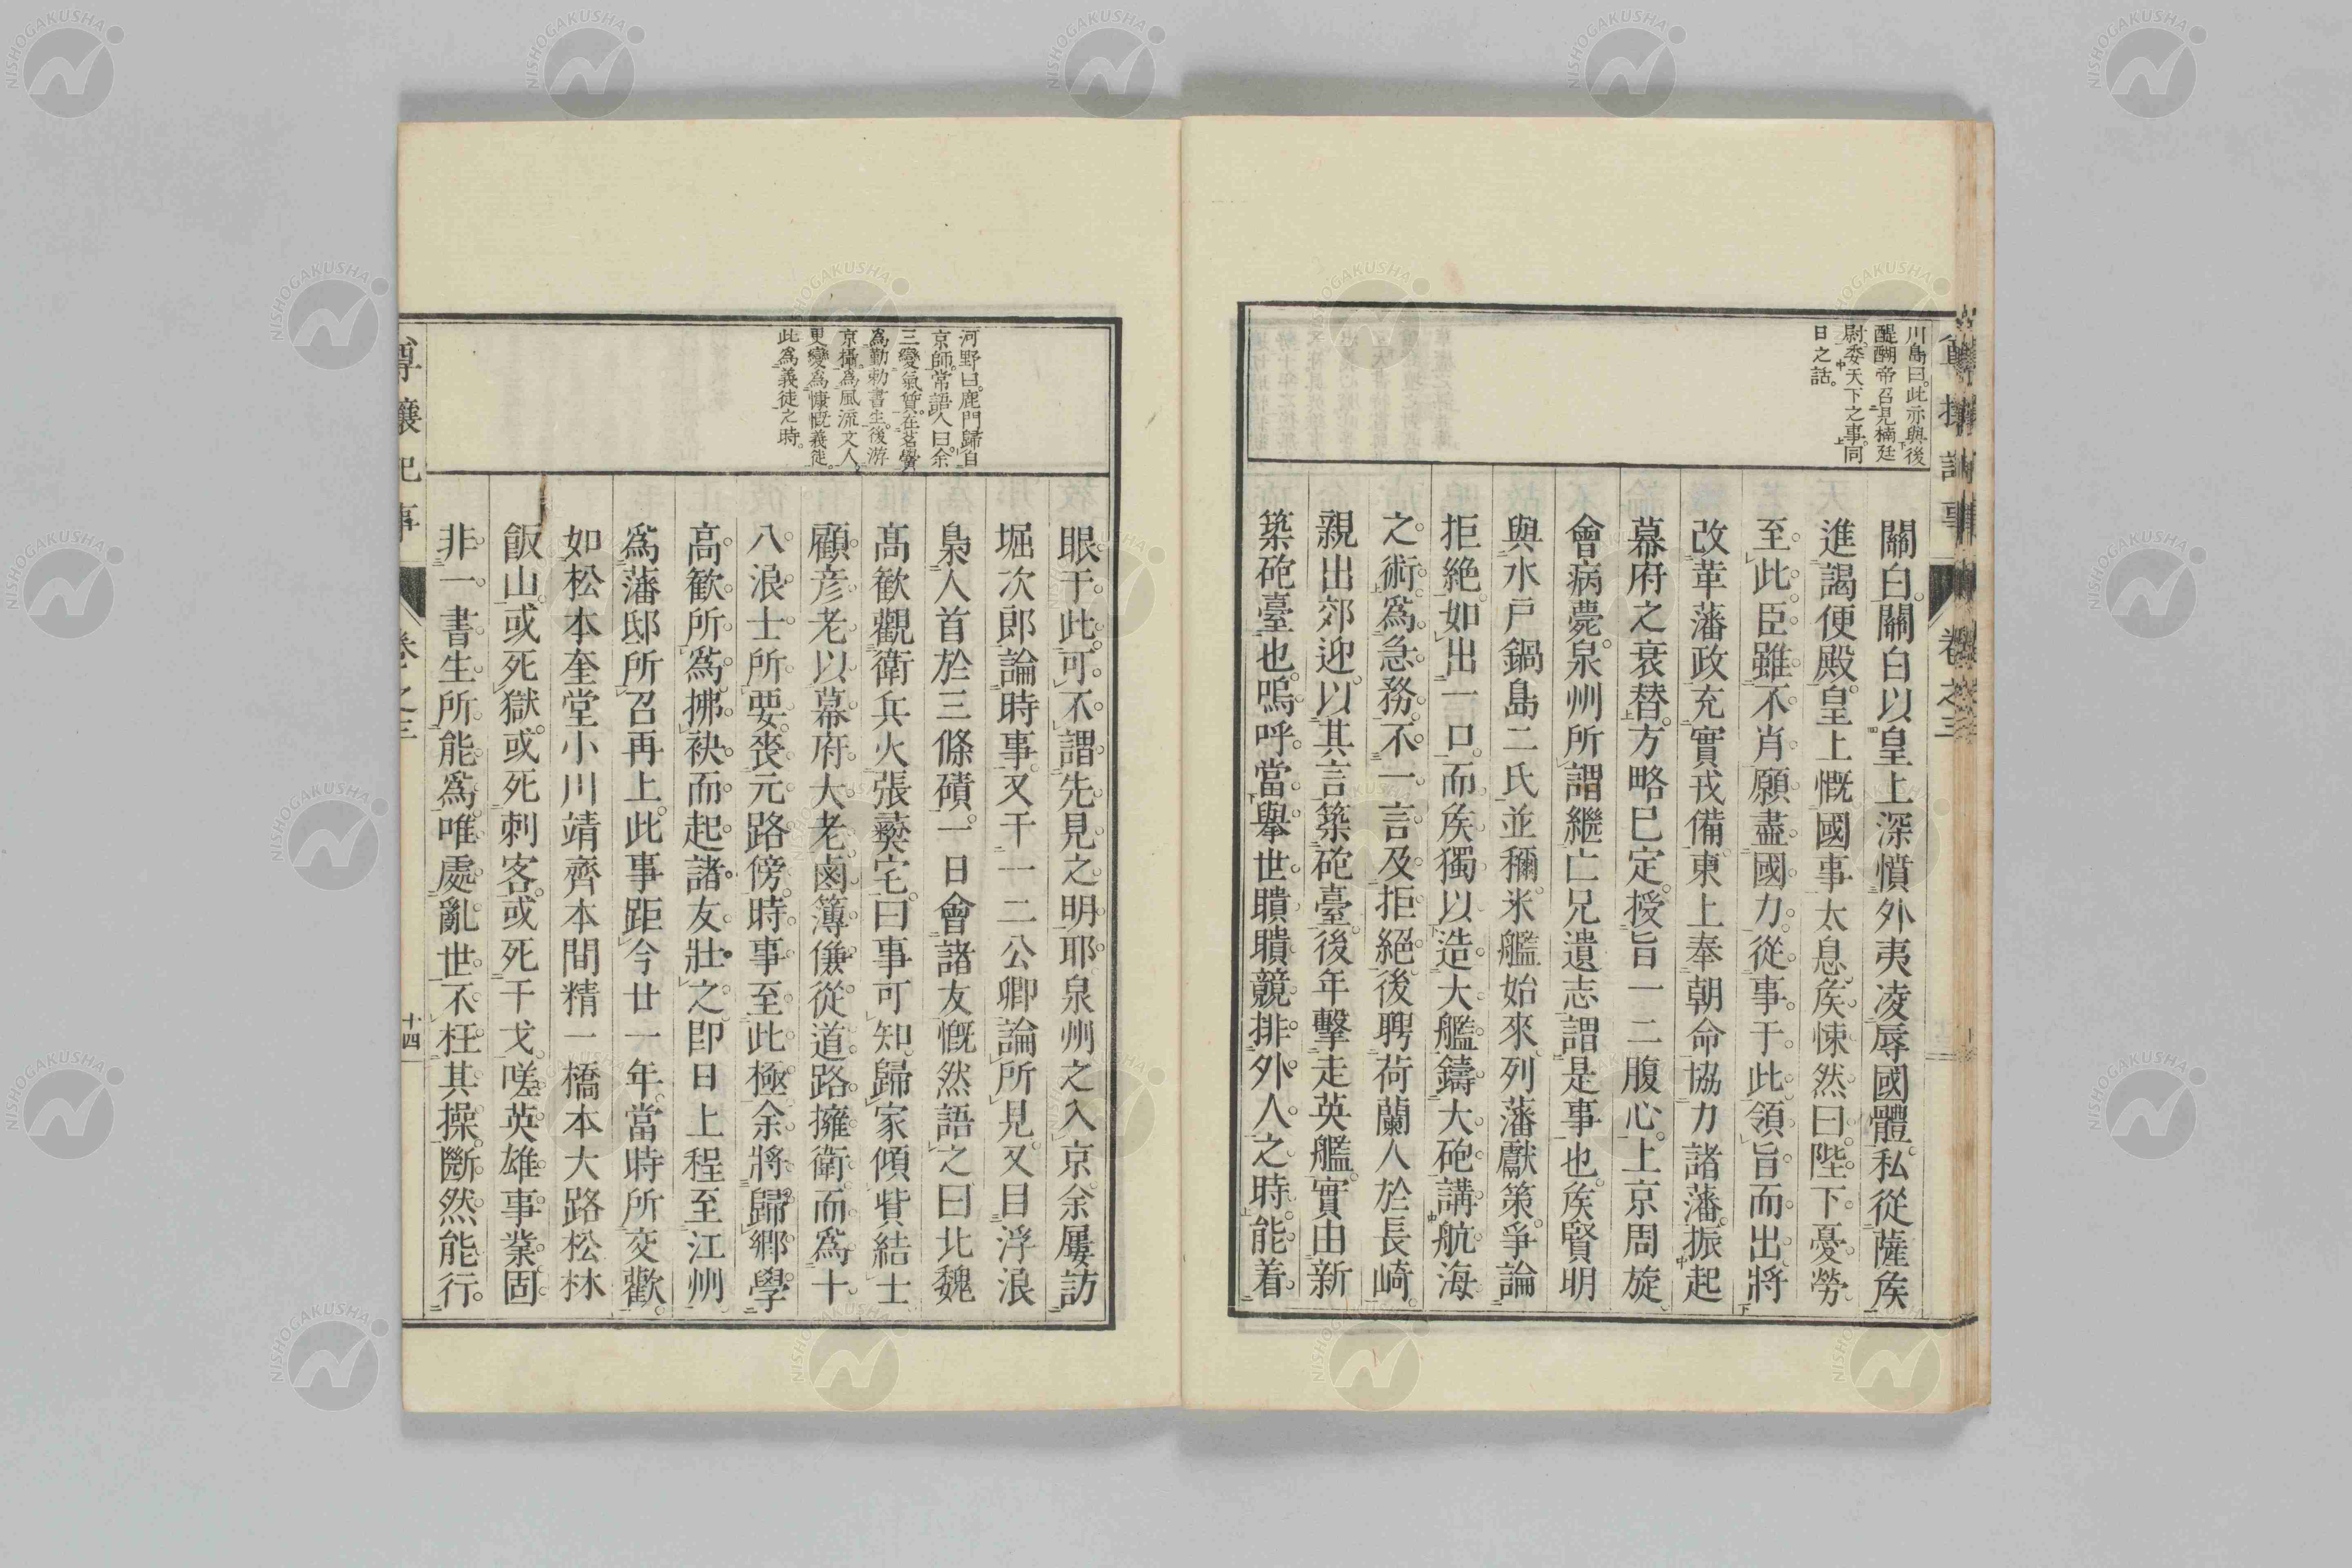 尊攘記事
卷之三
川島曰。此亦與後
醍醐帝召見楠廷
尉。委天下之事。同
日之話。
關白。關白以皇上深憤外夷凌辱國體。私從薩矦
進謁便殿。皇上慨國事太息。矦悚然曰。陛下憂勞
至此。臣雖不肖。願盡國力。從事于此。領旨而出。將
改革藩政。充實戎備。東上奉朝命。協力諸藩。振起
幕府之衰替。方略已定。授旨一二腹心。上京周旋
會病薨。泉州所謂繼亡兄遺志。謂是事也。矦賢明
與水戶鍋島二氏並稱。米艦始來。列藩獻策。爭論
拒絕。如出一口。而矦獨以造大艦。鑄大砲。講航海
之術。爲急務。不一言及拒絕。後聘荷蘭人於長崎。
親出郊迎。以其言築砲臺。後年擊走英艦。實由新
築砲臺也。嗚呼。當擧世聵聵競排外人之時。能着
眼于此。可不謂先見之明耶。泉州之入京。余屢訪
堀次郎。論時事。又干一二公卿。論所見。又目浮浪
梟人首於三條磧。一日會諸友。慨然語之曰。北魏
高歡觀衛兵火張彜宅。曰事可知。歸家傾貲結士
顧彦老以幕府大老。鹵簿傔從。道路擁衛。而爲十
八浪士所要。喪元路傍。時事至此極。余將歸鄕學
高歡所爲。拂袂而起。諸友壯之。即日上程。至江州
爲藩邸所召再上。此事距今廿一年。當時所交歡。
如松本奎堂小川靖齊本間精一橋本大路松林
飯山。或死獄。或死刺客。或死干戈。嗟英雄事業。固
非一書生所能爲。唯處亂世。不枉其操。斷然能行。
河野曰。鹿門歸自
京師。常語人曰。余
三變氣質。在茗黌
爲勤勅書生。後游
京攝。爲風流文人。
更變爲慷慨義徒。
此爲義徒之時。
尊攘記事
卷之三
十四